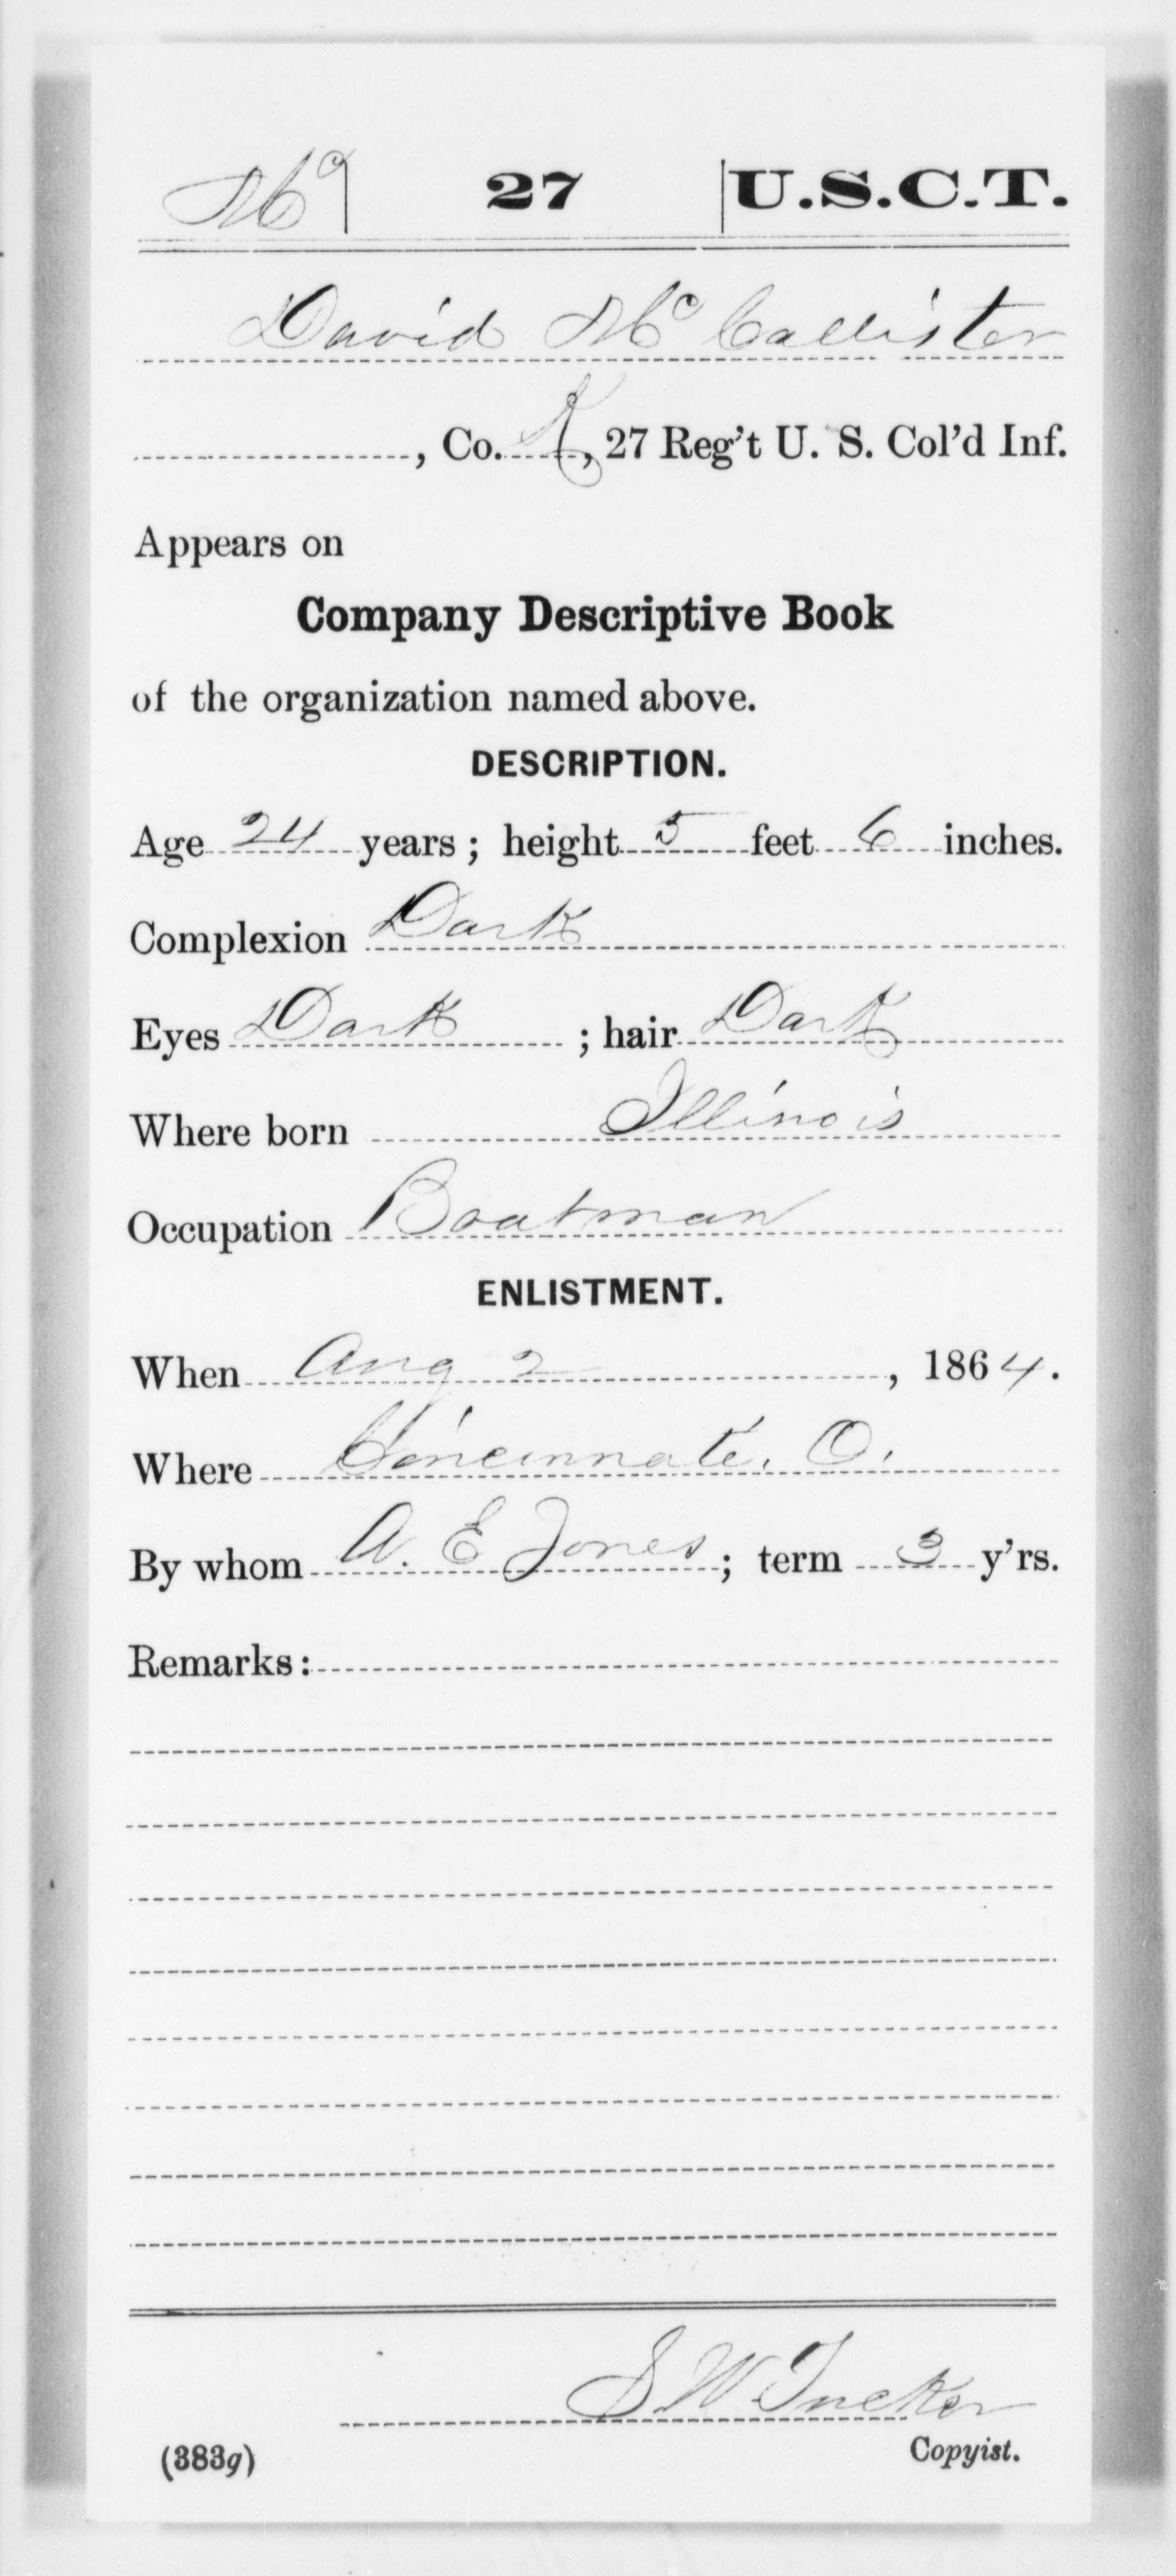 Mc 27 U.S.C.T.
David McCallister
, Co. K, 27 Reg't U. S. Col'd Inf.
Appears on
Company Descriptive Book
of the organization named above.
DESCRIPTION.
Age 24 years; height 5 feet 6 inches.
Complexion Dark
Eyes Dark ; hair Dark
Where born Illinois
Occupation Boatman
ENLISTMENT.
When Aug 2, 1864.
Where Cincinnati, O.
By whom A. E Jones; term 3 y'rs.
Remarks:
S W Tucker
(383g) Copyist.